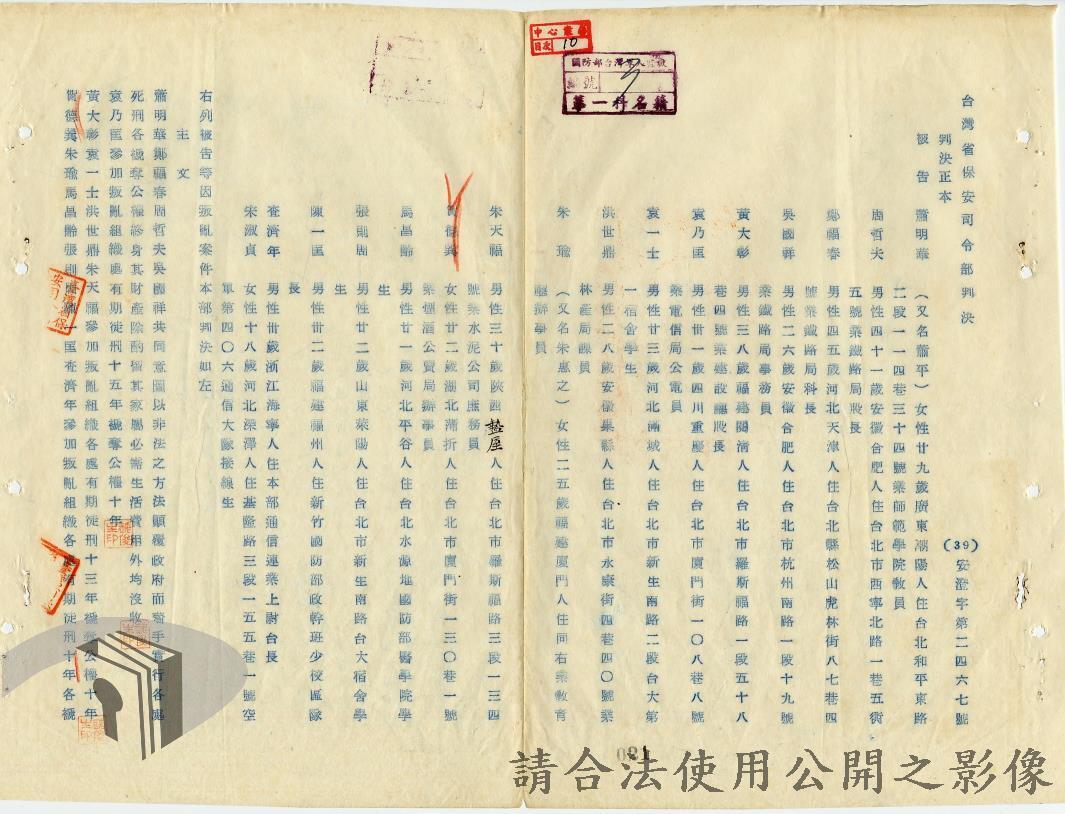 台灣省保安司令部判決
(39)安澄字第二四六七號
判決正本
被告 蕭明華 (又名蕭平)女性廿九歲廣東潮陽人住台北和平東路
二段一一四巷三十四號業師範學院教員
周哲夫 男性四十一歲安徽合肥人住台北市西寧北路一巷五街
五號業鐵路局股長
鄭福春 男性四五歲河北天津人住台北縣松山虎林街八七巷四
號業鐵路局科長
吳國祥 男性二六歲安徽合肥人住台北市杭州南路一段十九號
業鐵路局事務員
黃大彰 男性三八歲福建閩清人住台北市羅斯福路一段五十八
巷四號業建設廳股長
袁乃匡 男性卅一歲四川重慶人住台北市廈門街一〇八巷八號
業電信局公電員
袁一士 男性廿三歲河北滿城人住台北市新生南路二段台大第
一宿舍學生
洪世鼎 男性二八歲安徽巢縣人住台北市永康街四巷四〇號業
林產局課員
朱瑜 (又名朱惠之)女性二五歲福建廈門人住同右業教育
廳辦學員
朱天福 男性三十歲陝西盩厔人住台北市羅斯福路三段一三四
號業水泥公司庶務員
女性廿二歲湖北浦折人住台北市廈門街一三〇巷一號
業煙酒公賣局辦事員
馬昌齡 男性廿一歲河北平谷人住台北水源地國防部醫學院學
生
張則周 男性廿二歲山東萊陽人住台北市新生南路台大宿舍學
生
陳一匡 男性卅二歲福建福州人住新竹國防部政幹班少校區隊
長
查濟年 男性卅歲浙江海寧人住本部通信連業上尉台長
宋淑貞 女性十八歲河北深澤人住基隆路三段一五五巷一號空
軍第四〇六通信大隊接線生
右列被告等因叛亂案件本部判決如左
主文
蕭明華鄭福春周哲夫吳國祥共同意圖以非法之方法顛覆政府而著手實行各處
死刑各褫奪公權終身其財產除酌留其家屬必需生活費用外均沒收
袁乃匡參加叛亂組織處有期徒刑十五年褫奪公權十年
黃大彰袁一士洪世鼎朱天福參加叛亂組織各處有期徒刑十三年褫奪公權十年
德巽朱瑜馬昌齡張則周陳一匡查濟年參加叛亂組織各處有期徒刑十年各褫
中心
目次 10
國防部台灣軍人監獄
編號
第一科名籍
021
請合法使用公開之影像